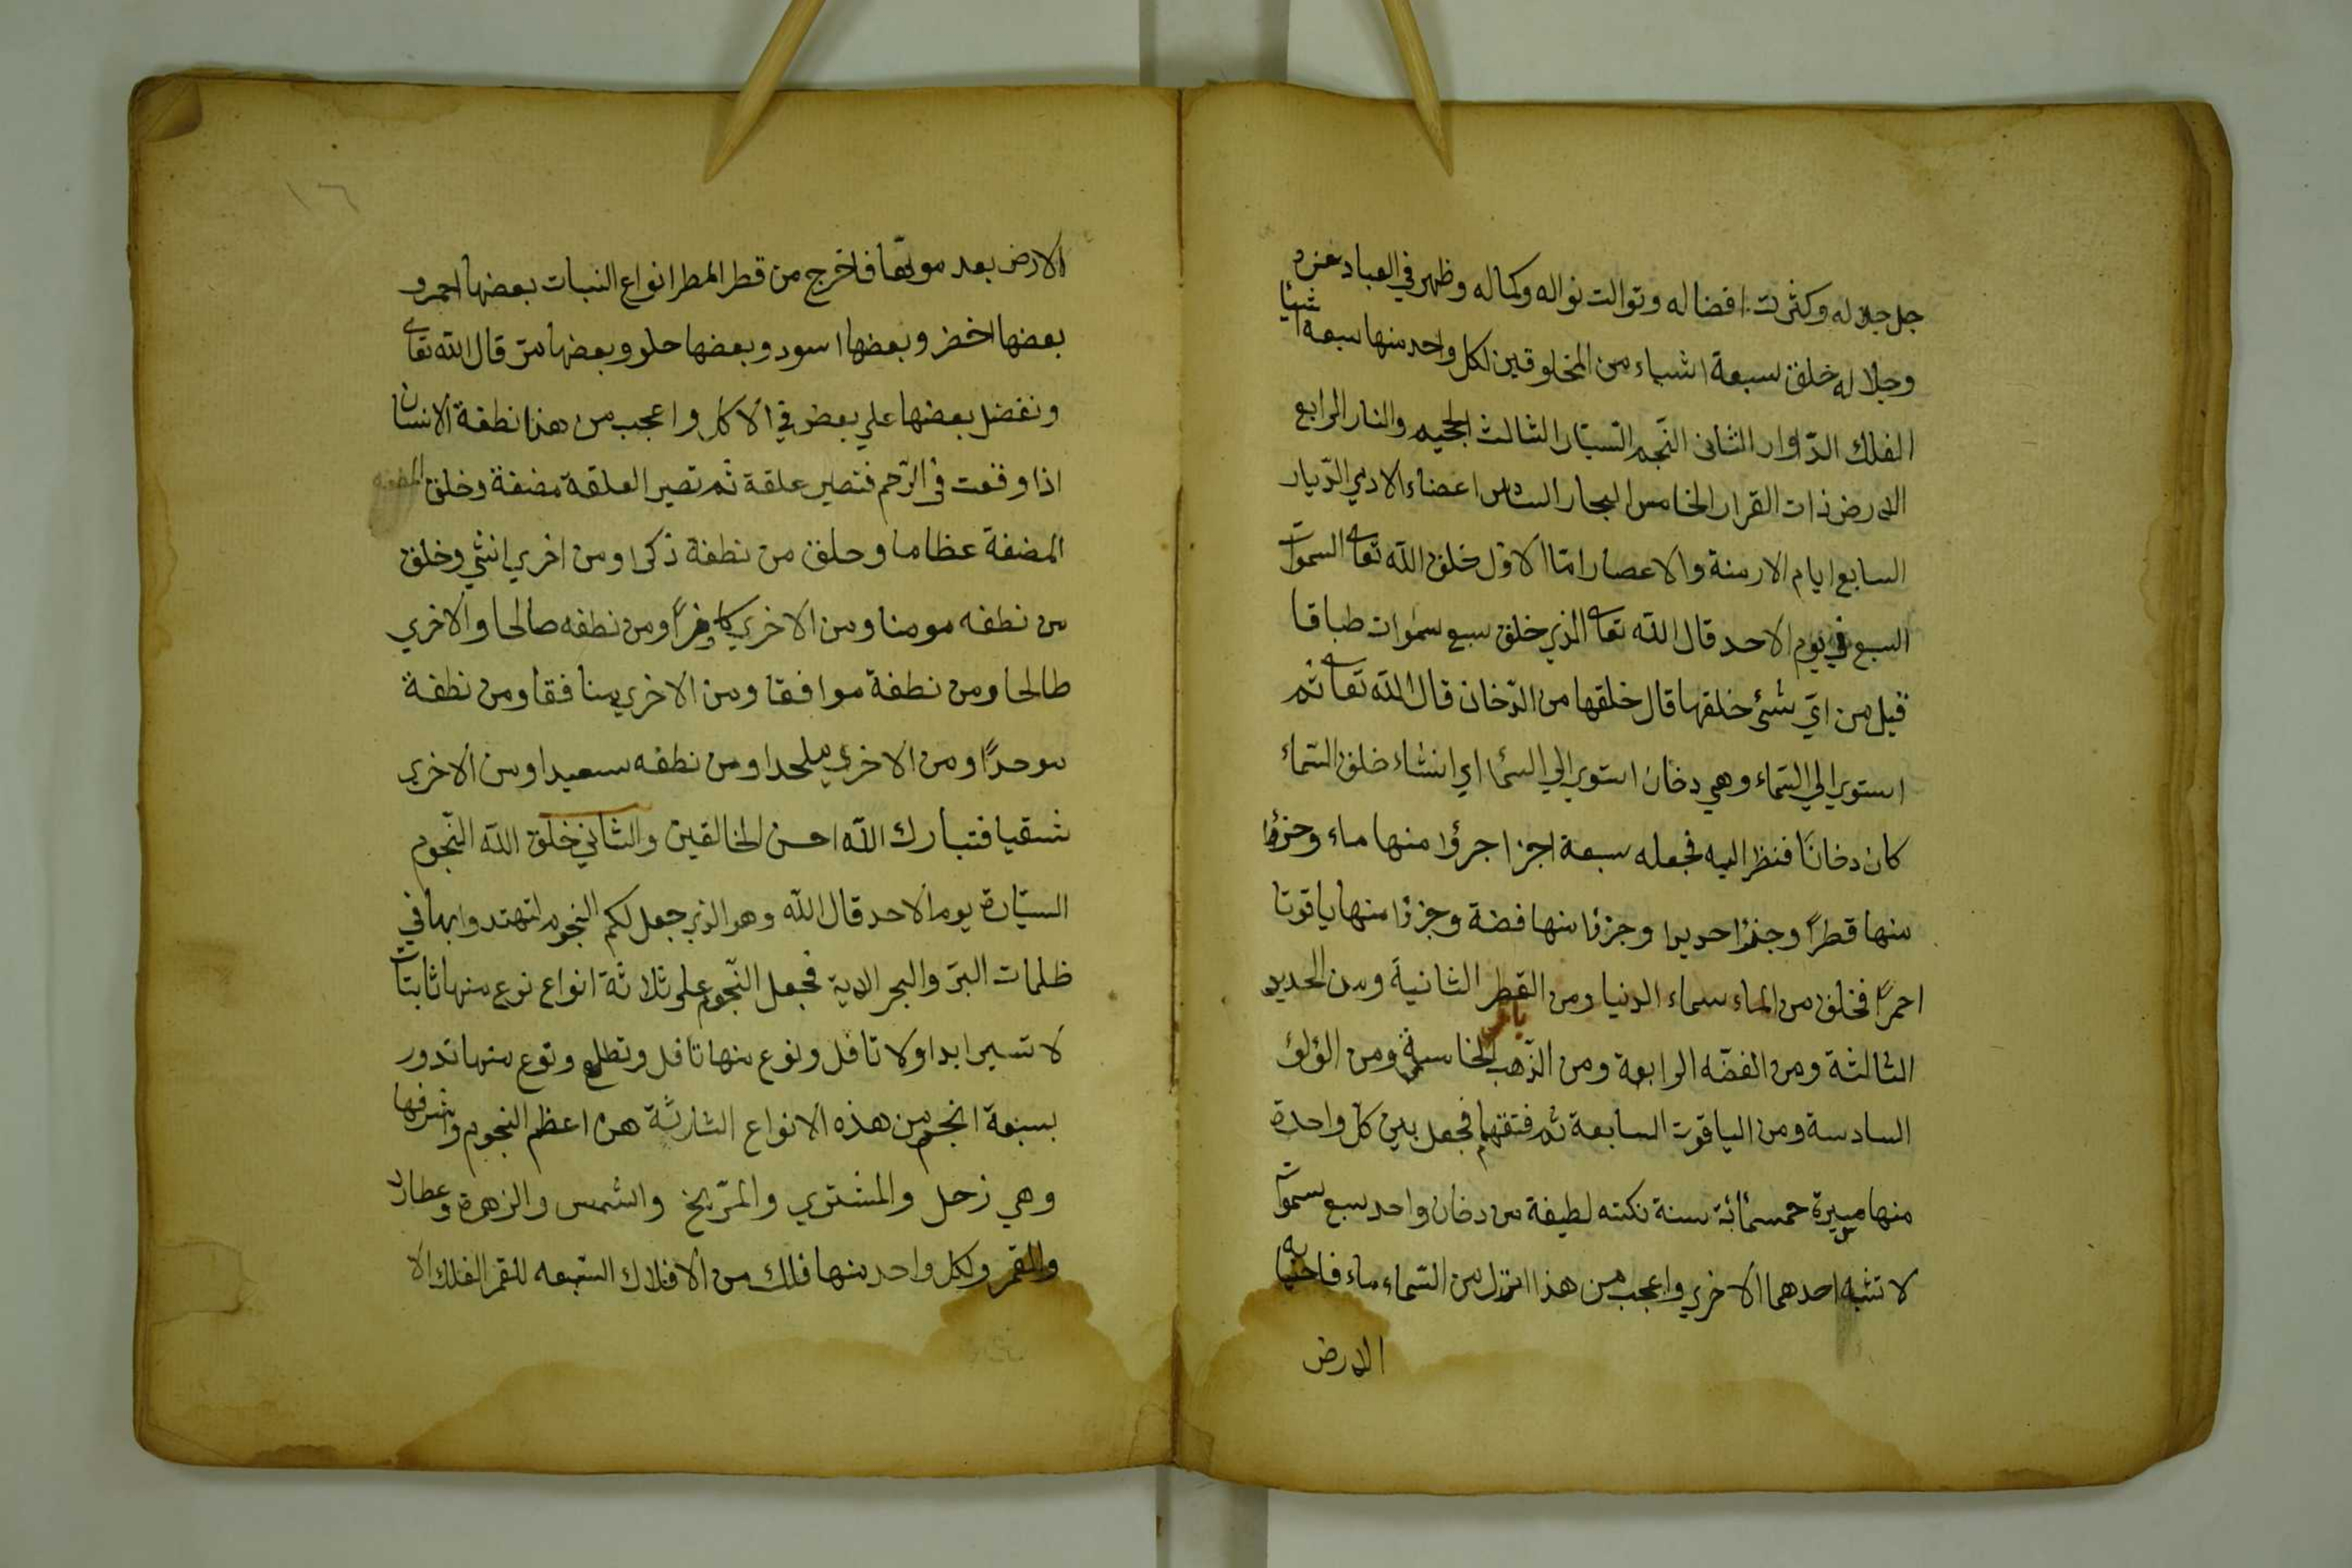 جل جلاله وكثرت افضاله وتوالت نواله وكماله وظهر في العباد عزه
وجلاله خلق سبعة اشياء من المخلوقين لكل واحد منها سبعة اشيأ
الفلك الدّاوار الثانى النّجم السّيّار الثالث الجحيم والنار الرابع
الارض ذات القرار الخامس البحار السادس اعضاء الادمي الدّيار
السابع ايام الازمنة والاعصار امّا الاوّل خلق الله تعا السموات
السبع في يوم الاحد قال الله تعا الذي خلق سبع سموات طباقا
قيل من ايّ شئ خلقها قال خلقها من الدّخان قال الله تعا ثم
استوي الي السّماء وهي دخان استوي الي السّما اي انشاء خلق السّماء
كان دخانًا فنظر اليه فجعله سبعة اجزا جزؤا منها ماء وجزؤا
منها قطرًا وجزؤا حديدا وجزؤا منها فضة وجزؤا منها ياقوتا
احمرًا فخلق من الماء سماء الدنيا ومن القطر الثانية ومن الحديد
الثالثة ومن الفضّه الرابعة ومن الذّهب الخامسة ومن الؤلؤ
السادسة ومن الياقوت السابعة ثم فتقهم فجعل بين كل واحدة
منها مسيرة خمسمائة سنة نكته لطيفة من دخان واحد سبع سموات
لا تشبه احدهما الاخري واعجب من هذا انزل من السّماء ماء فاحيا به
الارض
١٦
الارض بعد موتها فاخرج من قطر المطر انواع النبات بعضها احمر و
بعضها اخضر وبعضها اسود وبعضها حلو وبعضها مرّ قال الله تعا
ونفضل بعضها علي بعض في الاكل واعجب من هذا نطفة الانسان
اذا وقعت في الرّحم فتصير علقة ثم تصير العلقة مضغة وخلق المضغه
المضغة عظاما وخلق من نطفة ذكرا ومن اخري انثي وخلق
من نطفه مومنا ومن الاخري كافرًا ومن نطفه صالحا والاخري
طالحا ومن نطفة موافقا ومن الاخري منافقا ومن نطفة
موحدًا ومن الاخري ملحدا ومن نطفه سعيدا ومن الاخري
شقيا فتبارك الله احسن الخالقين والثاني خلق الله النّجوم
السيّارة يوم الاحد قال الله وهو الذي جعل لكم النجوم لتهتدوا بها في
ظلمات البرّ والبحر الاية فجعل النّجوم على ثلاثة انواع نوع منها ثابتات
لا تسير ابدا ولا تافل ونوع منها تافل وتطلع ونوع منها تدور
سبعة انجم من هذه الانواع الثلاثة هن اعظم النجوم واشرفها
وهي زحل والمشتري والمرّيخ والشمس والزهرة وعطارد
والقمر ولكل واحد منها فلك من الافلاك السّبعه للقمر الفلك الا